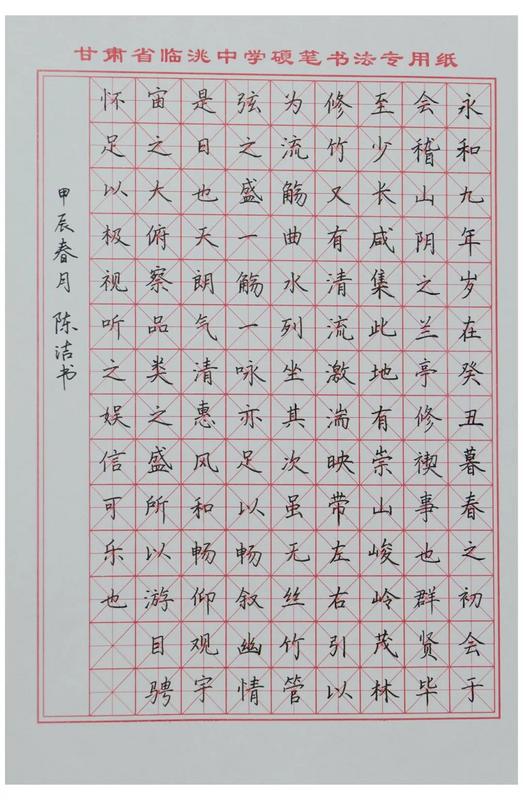 甘肃省临洮中学硬笔书法专用纸
永和九年岁在癸丑暮春之初会于
会稽山阴之兰亭修禊事也群贤毕
至少长咸集此地有崇山峻岭茂林
修竹又有清流激湍映带左右引以
为流觞曲水列坐其次虽无丝竹管
弦之盛一觞一咏亦足以畅叙幽情
是日也天朗气清惠风和畅仰观宇
宙之大俯察品类之盛所以游目骋
怀足以极视听之娱信可乐也
甲辰春月陈洁书